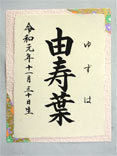 ゆずは
由寿葉
令和元年十一月三十日生